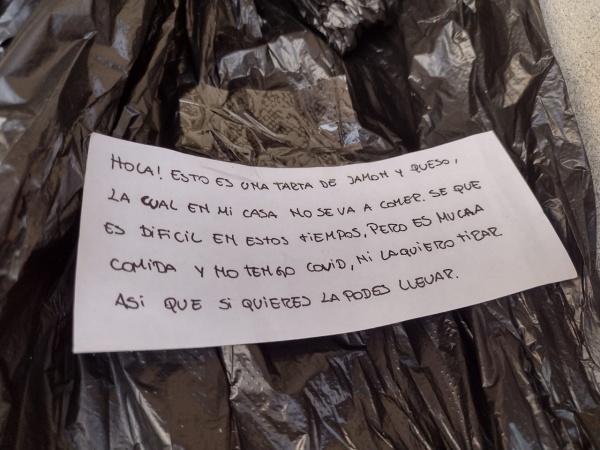 HOLA! ESTO ES UNA TARTA DE JAMON Y QUESO,
LA CUAL EN MI CASA NO SE VA A COMER. SE QUE
ES DIFICIL EN ESTOS TIEMPOS, PERO ES MUCHA
COMIDA Y NO TENGO COVID, NI LA QUIERO TIRAR
ASI QUE SI QUIERES LA PODES LLEVAR.